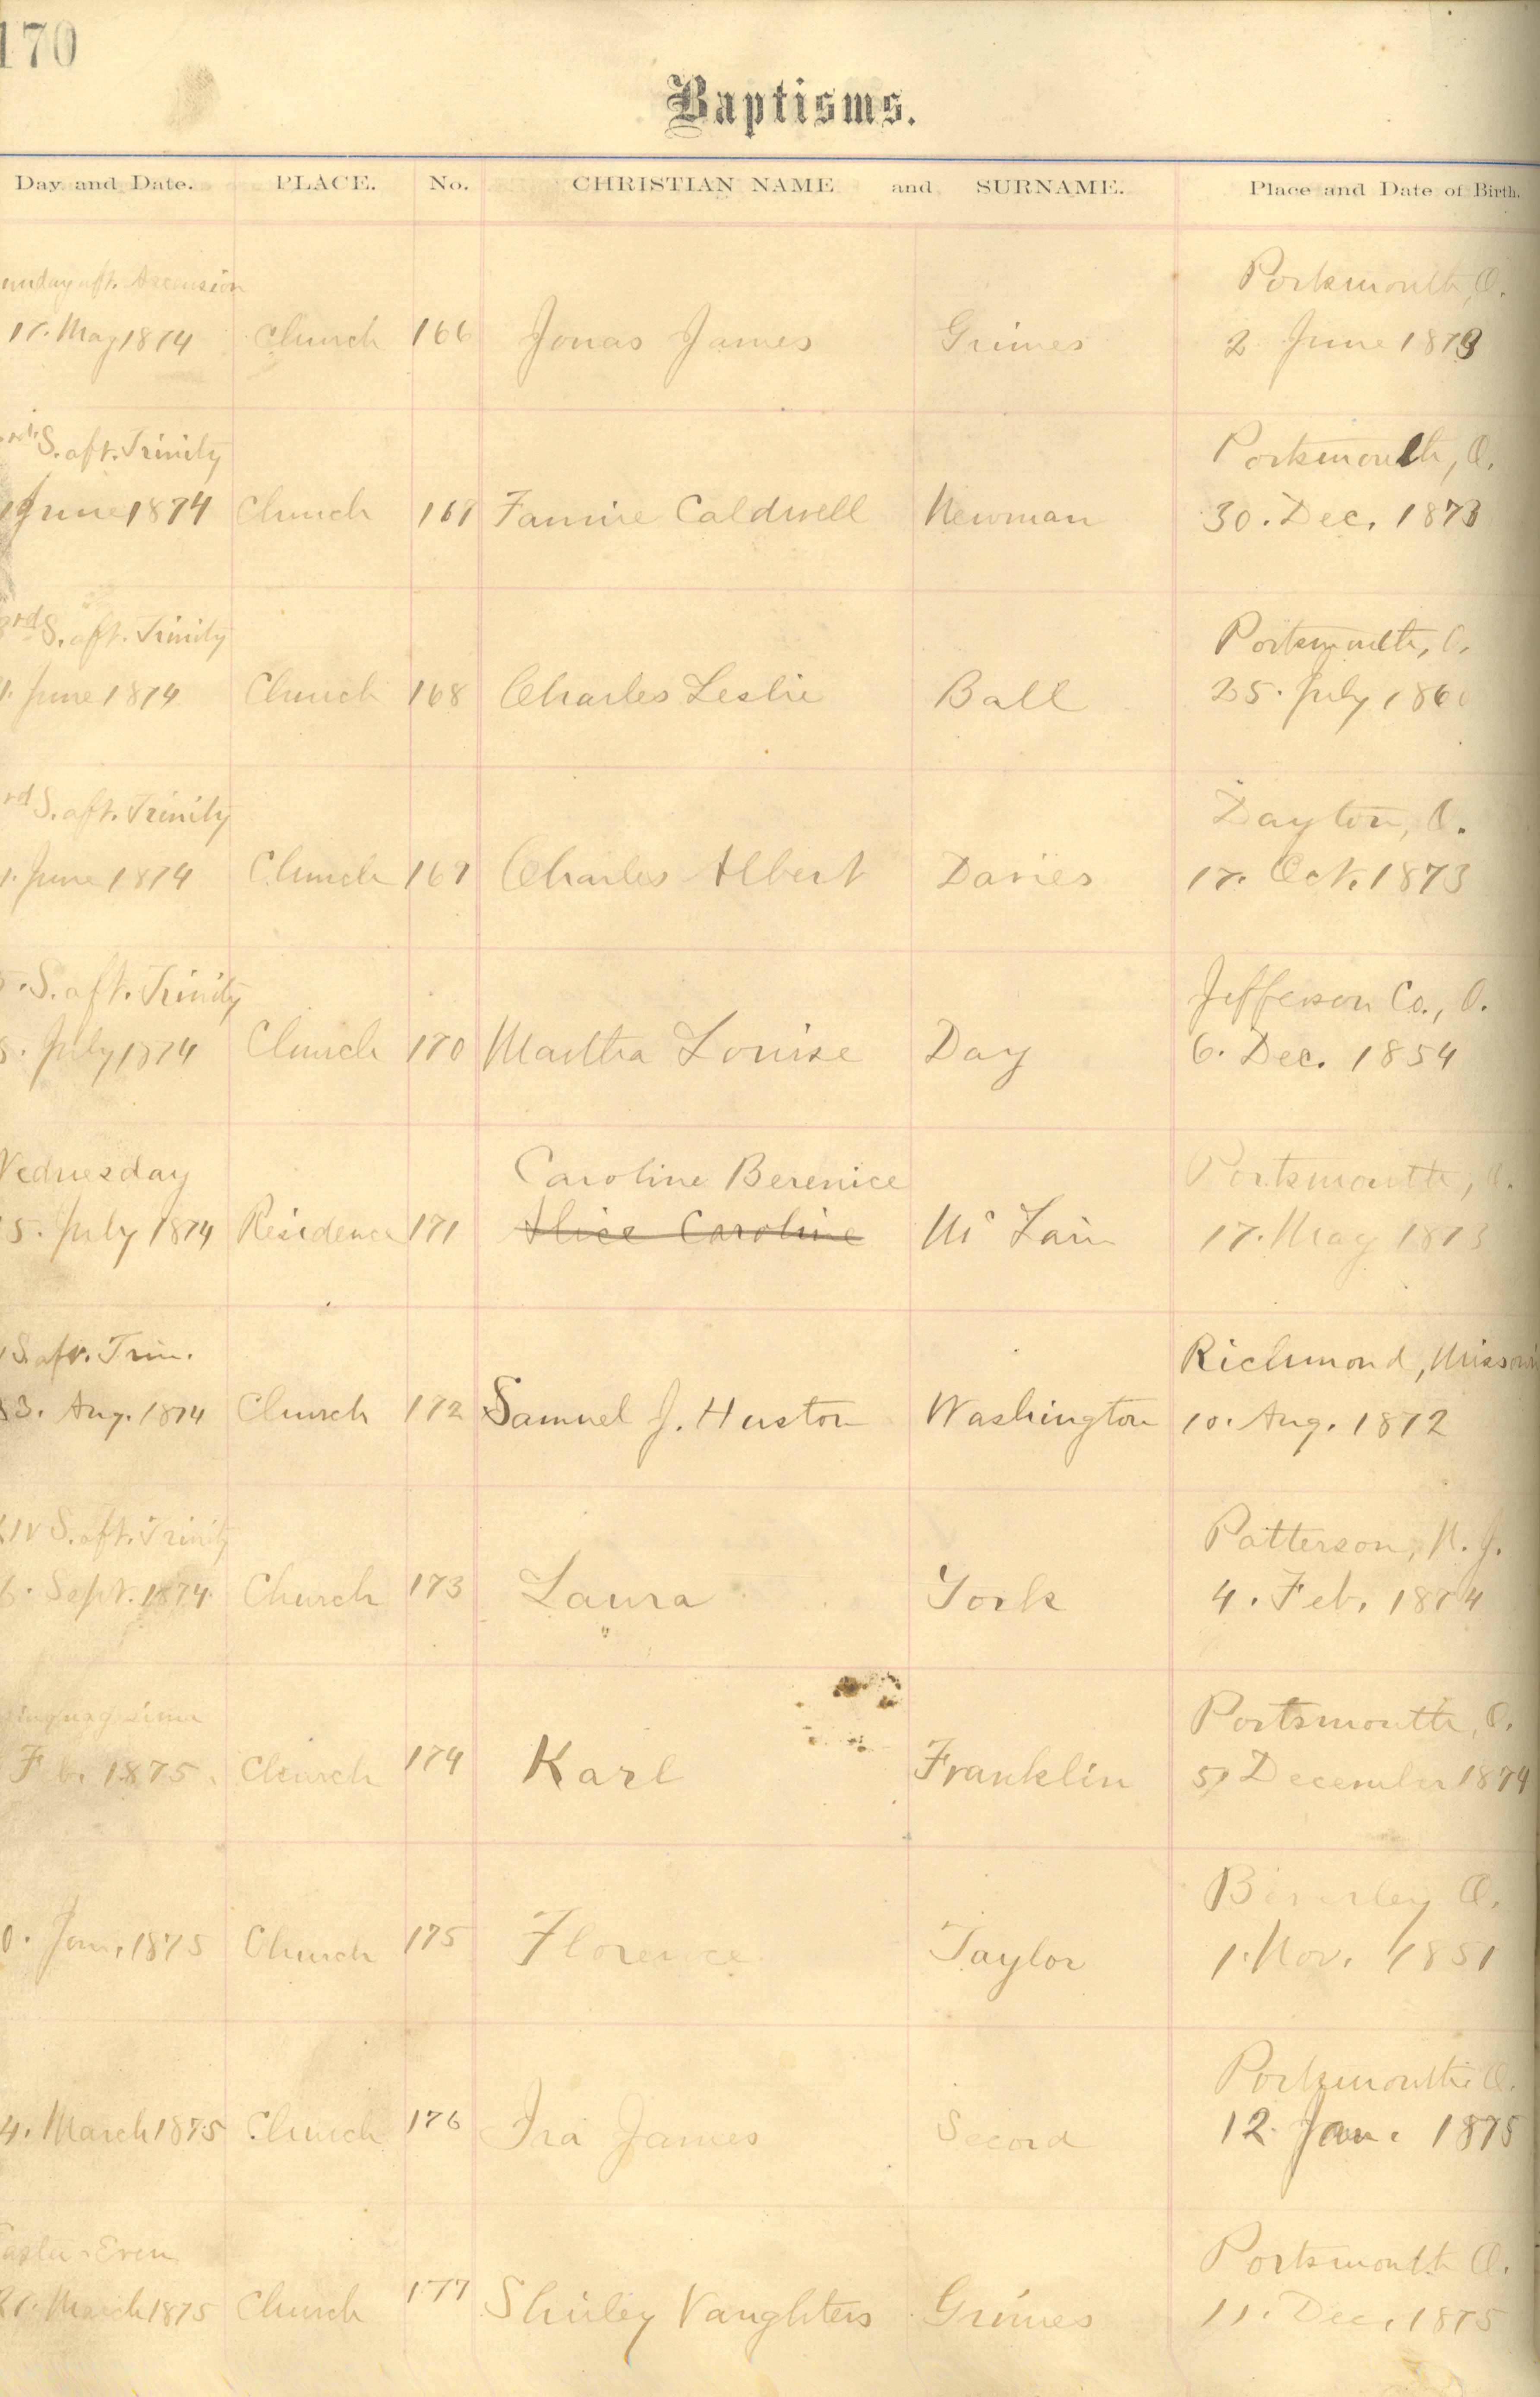 170
Baptisms.
Day and Date. PLACE. No. CHRISTIAN NAME and SURNAME. Place and Date of Birth.
unday aft. Ascension Portsmouth, O.
17. May 1874 Church 166 Jonas James Grimes 2 June 1873
S. aft. Trinity Portsmouth, O.
June 1874 Church 167 Fannie Caldwell Newman 30. Dec. 1873
3rd S. aft. Trinity Portsmouth, O.
1. June 1874 Church 168 Charles Leslie Ball 25. July 186
rd S. aft. Trinity Dayton, O.
1. June 1874 Church 169 Charles Albert Davies 17. Oct. 1873
. S. aft. Trinity Jefferson Co., O.
. July 1874 Church 170 Martha Louise Day 6. Dec. 1854
Wednesday Caroline Berenice Portsmouth, O.
5. July 1874 Residence 171 Alice Caroline Mc Lain 17. May 1873
S. aft. Trin. Richmond, Missouri
3. Aug. 1874 Church 172 Samuel J. Huston Washington 10. Aug. 1872
XIV S. aft. Trinity Patterson, N. J.
6. Sept. 1874 Church 173 Laura York 4. Feb. 1874
inquagesima Portsmouth, O.
Feb. 1875. Church 174 Karl Franklin 5, December 1874
Beverley O.
0. Jan. 1875 Church 175 Florence Taylor 1. Nov. 1851
Portsmouth O.
4. March 1875 Church 176 Ira James Secord 12. Jan. 1875
Easter Even Portsmouth O.
27. March 1875 Church 177 Shirley Vaughters Grimes 11. Dec. 1875